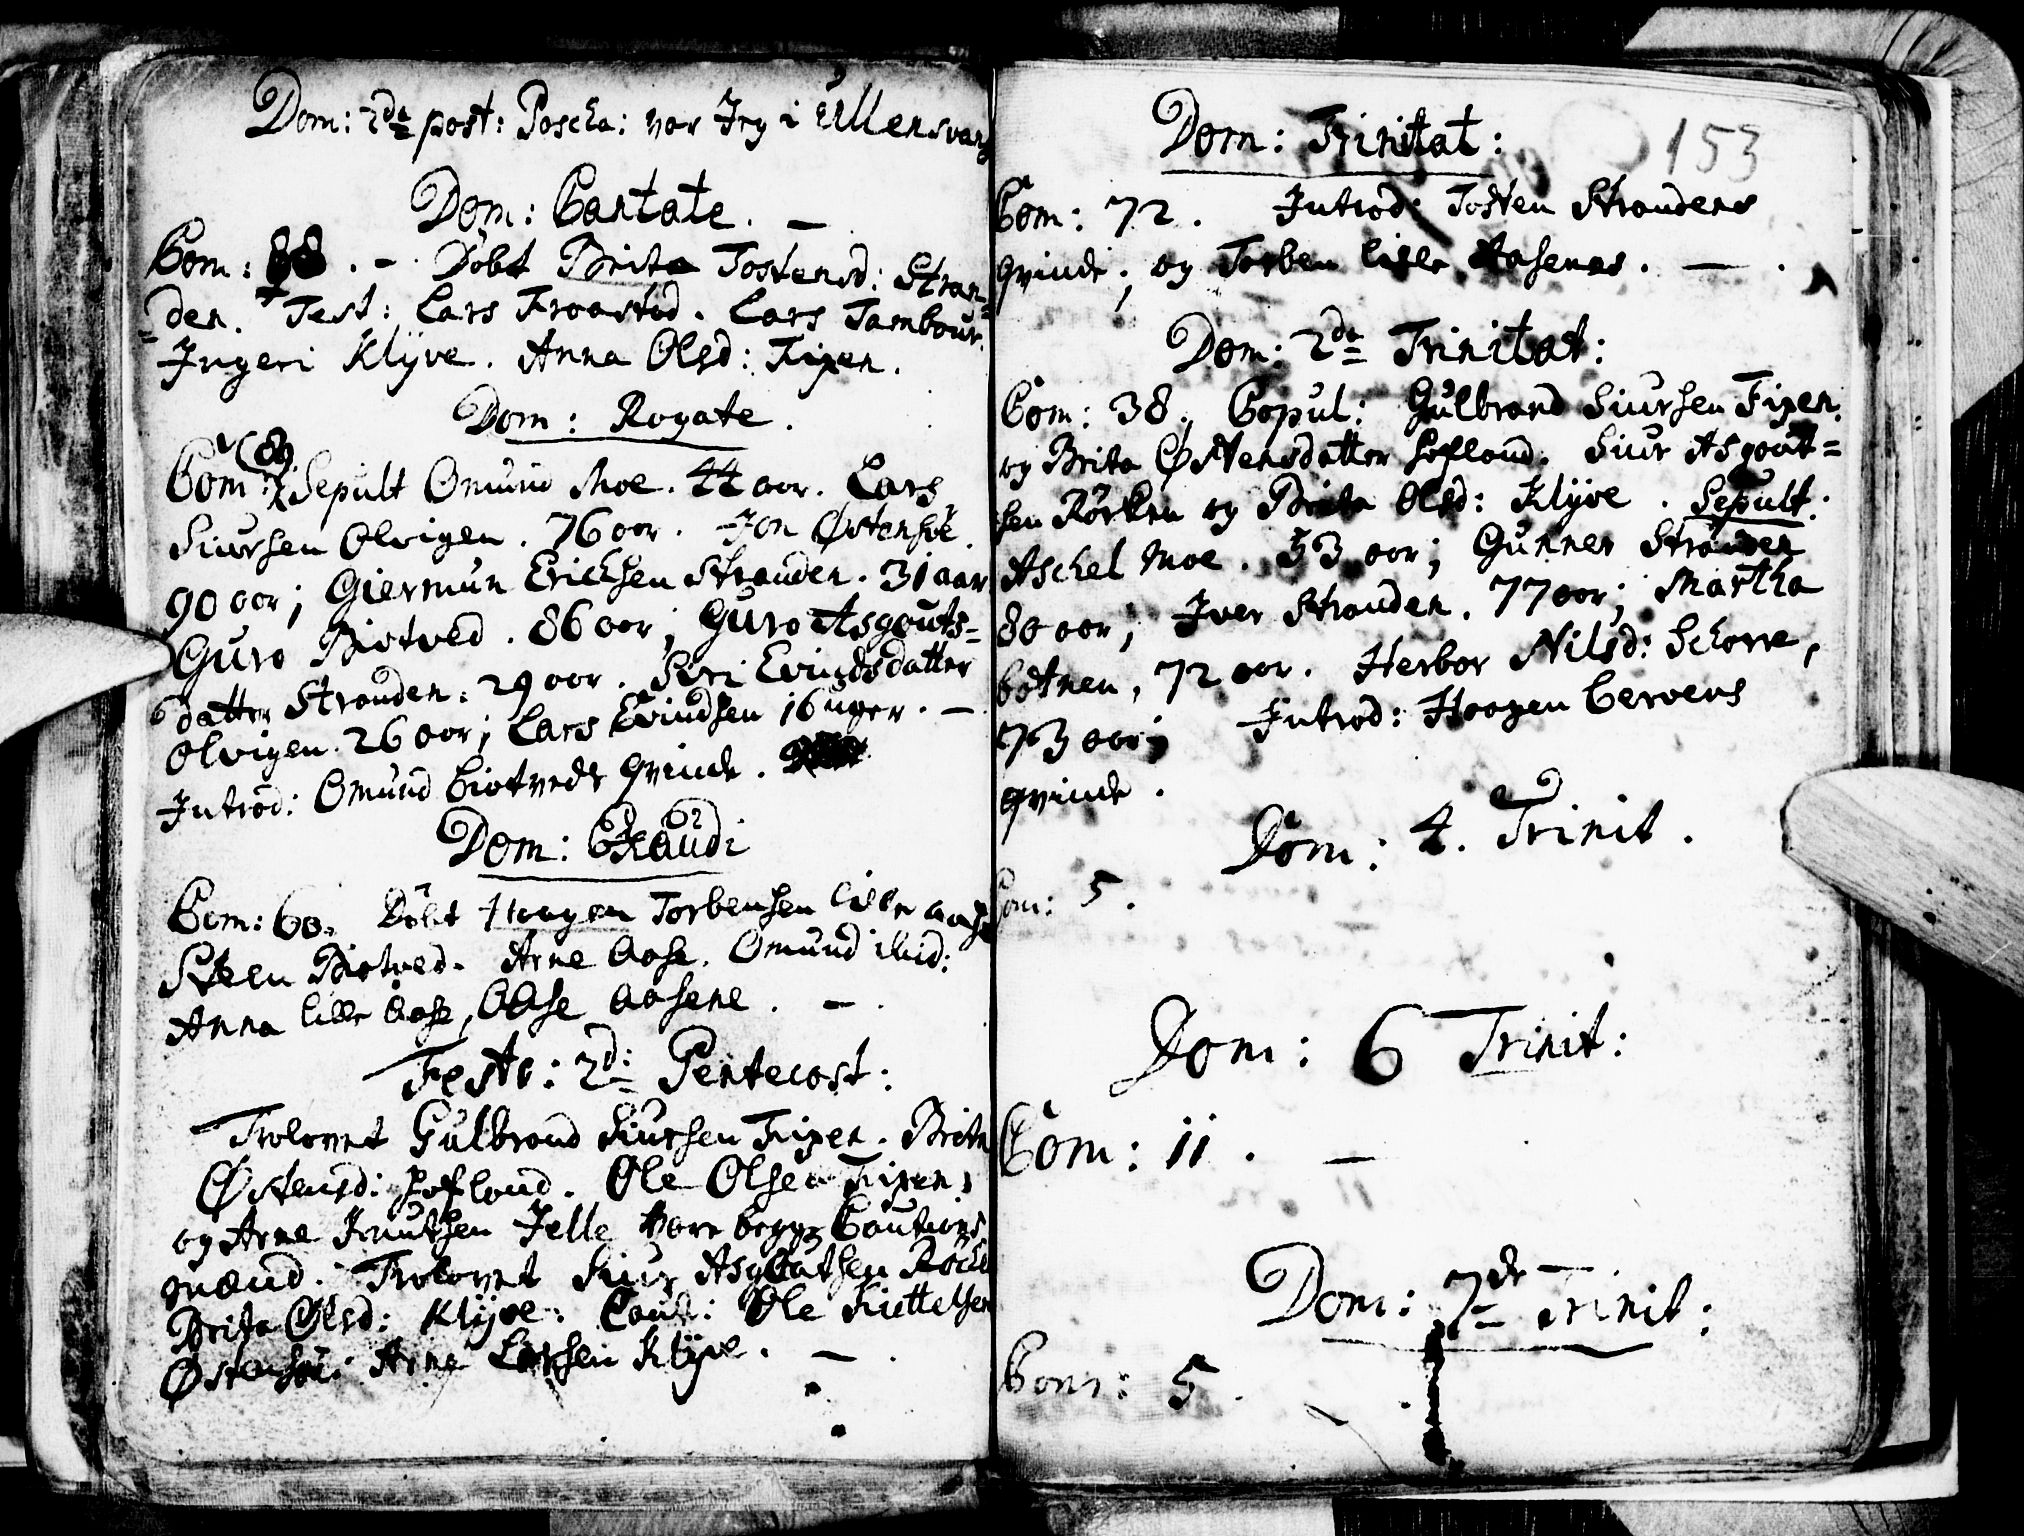 Dom: 2da post: Poscha: var Jeg i Ullensvang
Dom: Cantate. —
Com: 88. – Döbt Brita Tostensd: Stran=
=den. Test: Lars Froastød. Lars Tambour.
Ingeri Klÿve. Anna Olsd: Tixen.
Dom: Rogate.
Com: 89 Sepult Omund Moe. 44 aar. Lars
Siursen Olvigen. 76 aar. Jon Østensöe.
90 aar; Giermun Ericksen Stranden. 31 aar
Guro Biotved. 86 aar; Guro Asgouts=
datter Stranden. 29 aar. Siri Evindsdatter
Olvigen. 26 aar; Lars Evindsen 16 uger. —
Introd: Omund Biotveds qvinde.
Dom: Exaudi
Com: 60. Döbt Haagen Torbensen lille aase
Steen Biotved. Arne Aase. Omund ibid:
Anna lille Aase, Aase Aasene. —.
Festo: 2d: Pentecost:
Trolovet Gulbrand Siursen Tixen. Brita
Østensd: Hofland. Ole Olsen Tixen
og Arne Knutsen Jelle vare begge Cautions
mænd. Trolovet Siur Asgoutsen Röcke
Brita Olsd: Klÿve. Caut: Ole Kiettelsen
Østensöe. Arne Larsen Klÿve. —.
153
Dom: Trinitat:
Com: 72. Introd: Tosten Strandens
qvinde; og Torben lille Aasenes. —.
Dom: 2da Trinitat:
Com: 38. Copul: Gulbrand Siursen Tixen.
og Brita Østensdatter Hofland. Siur Asgout=
sen Rörken og Brita Olsd: Klÿve. Sepult.
Aschel Moe. 53 aar; Gunner Stranden
80 aar; Iver Stranden. 77 aar; Martha
botnen, 72 aar. Herbor Nilsd: Schorre,
73 aar; Introd: Haagen Bervens
qvinde.
Dom: 4. Trinit.
Com: 5.
Dom: 6 Trinit:
Com: 11. —
Dom: 7de Trinit:
Com: 5.